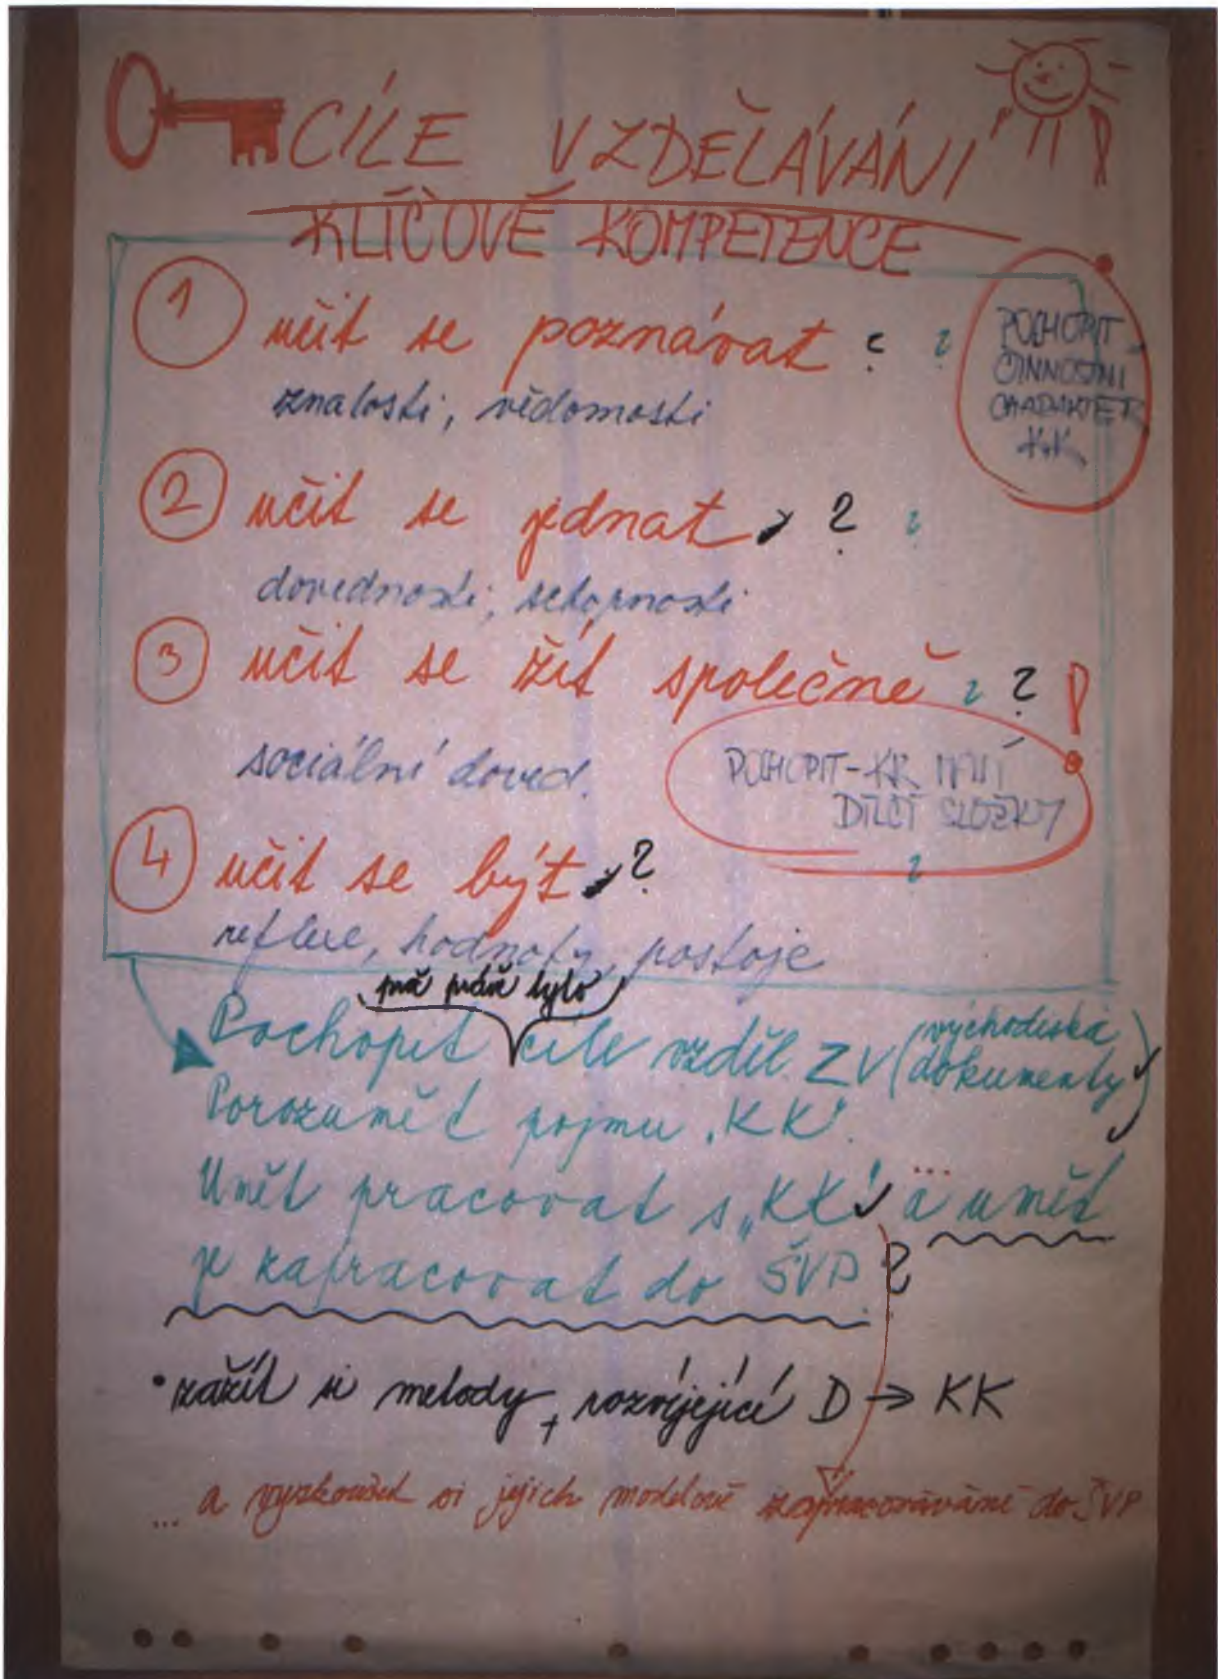 CÍLE VZDĚLÁVÁNÍ !
KLÍČOVÉ KOMPETENCE
1 učit se poznávat ? ?
znalosti, vědomosti
POCHOPIT
ČINNOSTNÍ
CHARAKTER
KK
2 učit se jednat, ? ?
dovednosti, schopnosti
3 učit se žít společně ? ? !
sociální doved.
POCHOPIT - KK MAJÍ
DÍLČÍ SLOŽKY
?
4 učit se být, ?
reflexe, hodnoty, postoje
proč právě tyto
Pochopit cíle vzděl. ZV (východiska
dokumenty)
Porozumět pojmu „KK“.
Umět pracovat s „KK“ ... a umět
je zapracovat do ŠVP. ?
• zažít si metody, rozvíjející D → KK
... a vyzkoušet si jejich modelové zapracovávání do ŠVP